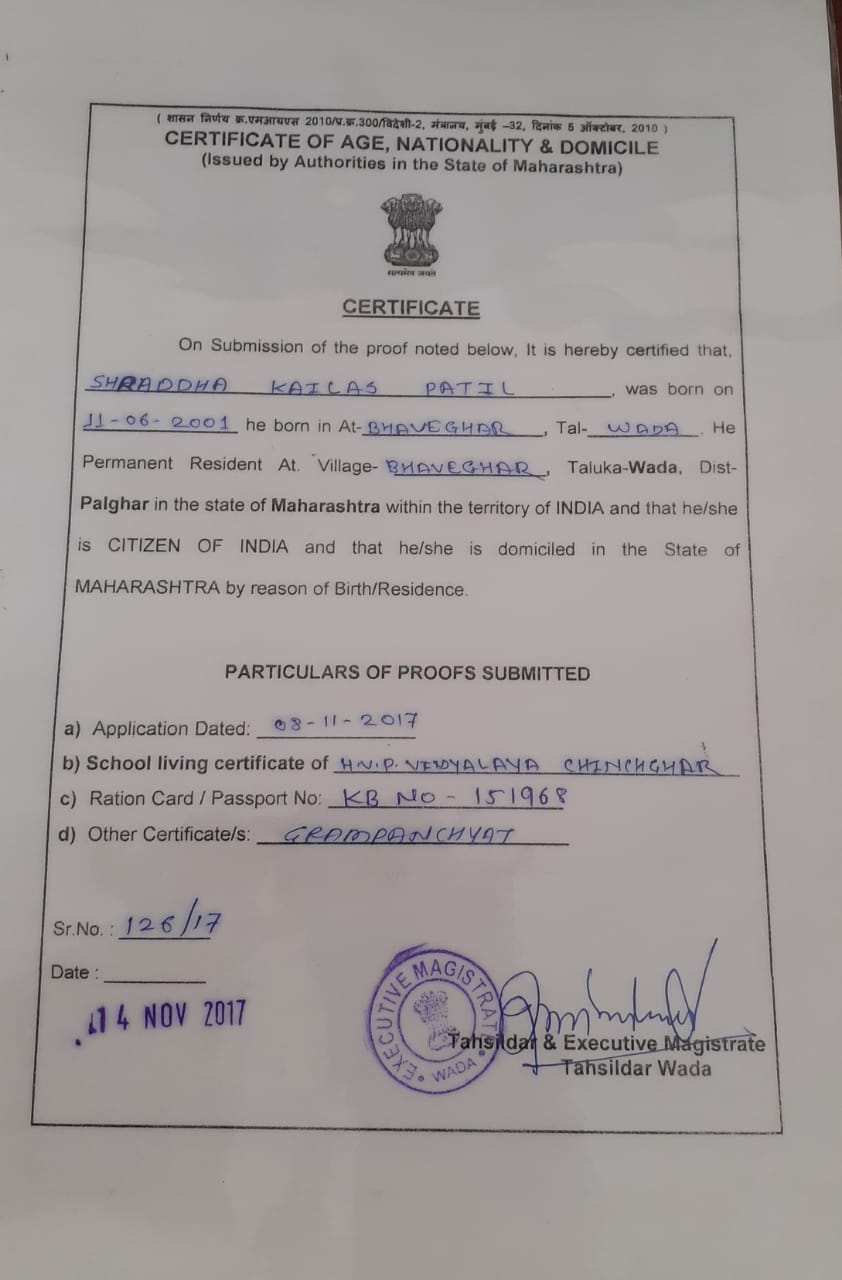 ( शासन निर्णय क्र.एमआयएस 2010/प्र.क्र.300/विदेशी-2, मंत्रालय, मुंबई –32, दिनांक 5 ऑक्टोबर, 2010 )
CERTIFICATE OF AGE, NATIONALITY & DOMICILE
(Issued by Authorities in the State of Maharashtra)
सत्यमेव जयते
CERTIFICATE
On Submission of the proof noted below, It is hereby certified that,
SHRADDHA KAILAS PATIL, was born on
11-06-2001 he born in At- BHAVEGHAR, Tal- WADA. He
Permanent Resident At. Village- BHAVEGHAR, Taluka-Wada, Dist-
Palghar in the state of Maharashtra within the territory of INDIA and that he/she
is CITIZEN OF INDIA and that he/she is domiciled in the State of
MAHARASHTRA by reason of Birth/Residence.
PARTICULARS OF PROOFS SUBMITTED
a) Application Dated: 08-11-2017
b) School living certificate of H.V.P. VIDYALAYA CHINCHGHAR
c) Ration Card / Passport No: KB NO - 151968
d) Other Certificate/s: GRAMPANCHYAT
Sr.No. : 126/17
Date :
14 NOV 2017
EXECUTIVE MAGISTRATE
WADA
Tahsildar & Executive Magistrate
Tahsildar Wada